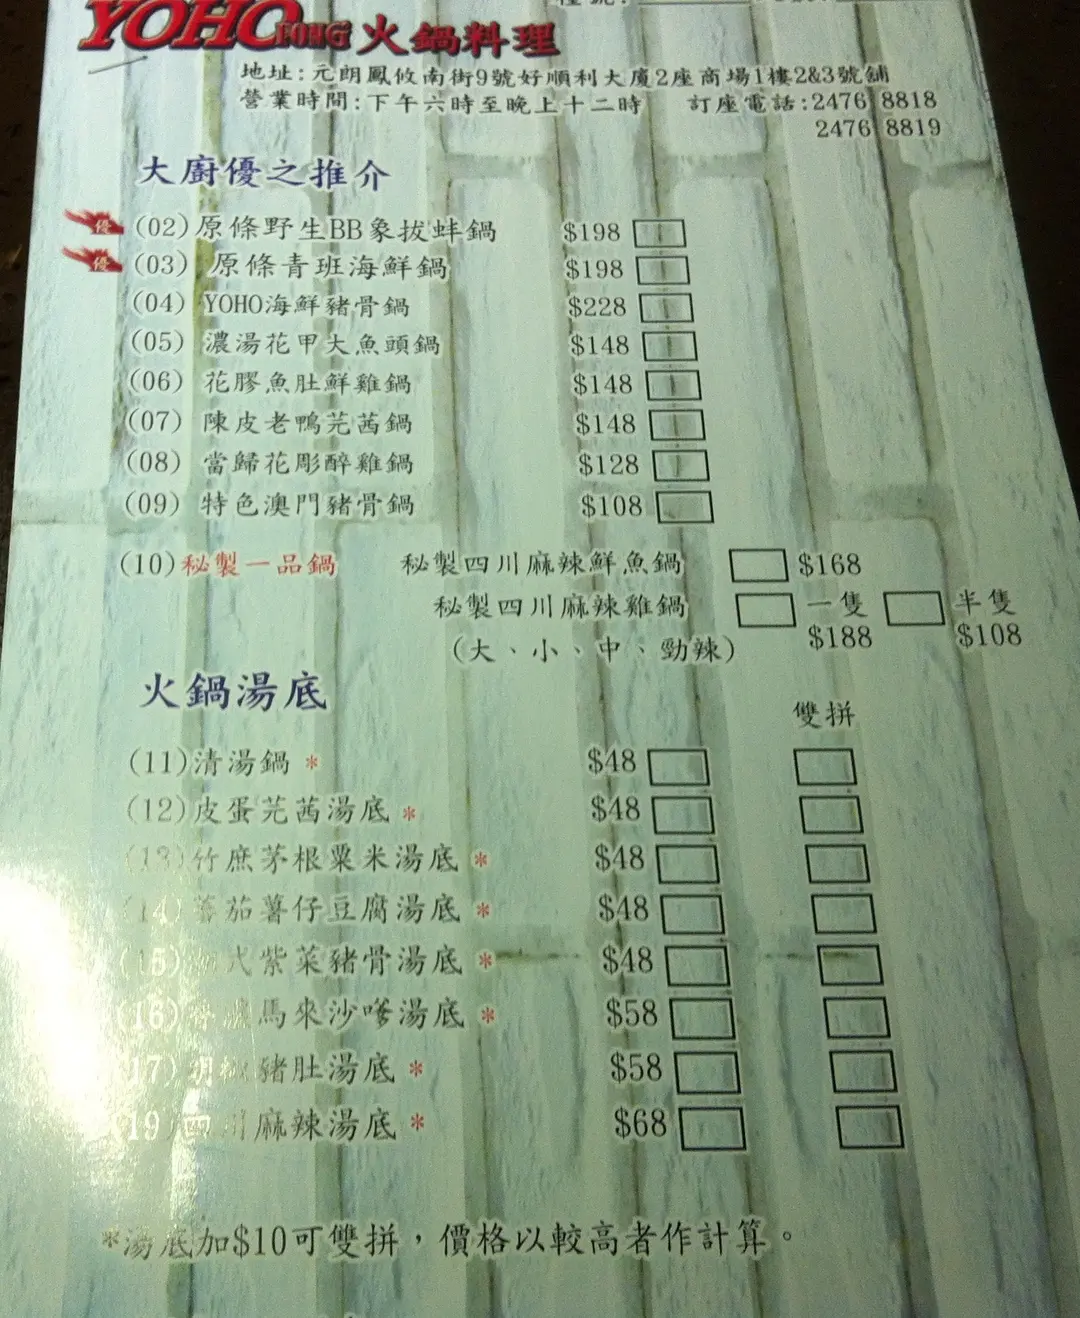 YOHO LONG 火鍋料理
地址:元朗鳳攸南街9號好順利大廈2座商場1樓2&3號舖
營業時間:下午六時至晚上十二時 訂座電話:2476 8818
2476 8819
大廚優之推介
優 (02)原條野生BB象拔蚌鍋 $198
優 (03) 原條青班海鮮鍋 $198
(04) YOHO海鮮豬骨鍋 $228
(05) 濃湯花甲大魚頭鍋 $148
(06) 花膠魚肚鮮雞鍋 $148
(07) 陳皮老鴨芫茜鍋 $148
(08) 當歸花彫醉雞鍋 $128
(09) 特色澳門豬骨鍋 $108
(10)秘製一品鍋 秘製四川麻辣鮮魚鍋 $168
秘製四川麻辣雞鍋 一隻 半隻
(大、小、中、勁辣) $188 $108
火鍋湯底 雙拼
(11)清湯鍋 * $48
(12)皮蛋芫茜湯底 * $48
(13)竹庶茅根粟米湯底 * $48
(14)蕃茄薯仔豆腐湯底 * $48
(15) 式紫菜豬骨湯底 * $48
(16) 馬來沙嗲湯底 * $58
(17)胡椒豬肚湯底 * $58
(19)四川麻辣湯底 * $68
*湯底加$10可雙拼，價格以較高者作計算。